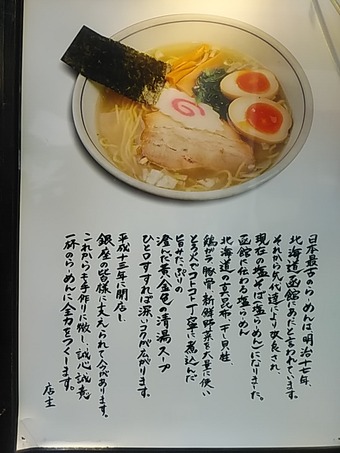 日本最古のらーめんは、明治十七年、
北海道函館にあったと言われています。
それから先代達により改良され、
現在の塩そば(塩らーめん)になりました。
函館に伝わる塩らーめん
北海道の真昆布、干し貝柱、
鶏ガラ、豚骨、新鮮野菜を大量に使い
とろ火でコトコト丁寧に煮込んだ
旨みたっぷりの
澄んだ黄金色の清湯スープ
ひと口すすれば深いコクが広がります。
平成十三年に開店し、
銀座の皆様に支えられて今があります。
これからも手作りに徹し、誠心誠意
一杯のらーめんに全力をつくします。
店主